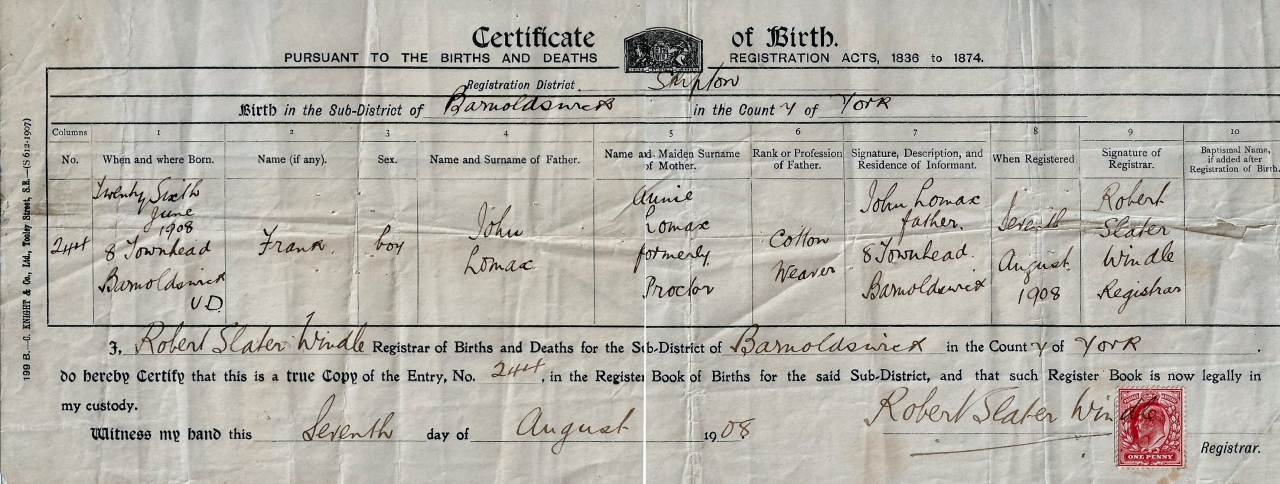 Certificate of Birth.
PURSUANT TO THE BIRTHS AND DEATHS REGISTRATION ACTS, 1836 to 1874.
Registration District Skipton
Birth in the Sub-District of Barnoldswick in the County of York
Columns 1 2 3 4 5 6 7 8 9 10
No. When and where Born. Name (if any). Sex. Name and Surname of Father. Name and Maiden Surname of Mother. Rank or Profession of Father. Signature, Description, and Residence of Informant. When Registered Signature of Registrar. Baptismal Name, if added after Registration of Birth.
244 Twenty Sixth June 1908 8 Townhead Barnoldswick U D Frank boy John Lomax Annie Lomax formerly Proctor Cotton Weaver John Lomax father. 8 Townhead. Barnoldswick Seventh August 1908 Robert Slater Windle Registrar
I, Robert Slater Windle Registrar of Births and Deaths for the Sub-District of Barnoldswick in the County of York
do hereby Certify that this is a true Copy of the Entry, No. 244, in the Register Book of Births for the said Sub-District, and that such Register Book is now legally in
my custody.
Witness my hand this Seventh day of August 1908 Robert Slater Windle Registrar.
ONE PENNY
199 B.—C. KNIGHT & Co., Ltd., Tooley Street, S.E.—(S 612-1907)